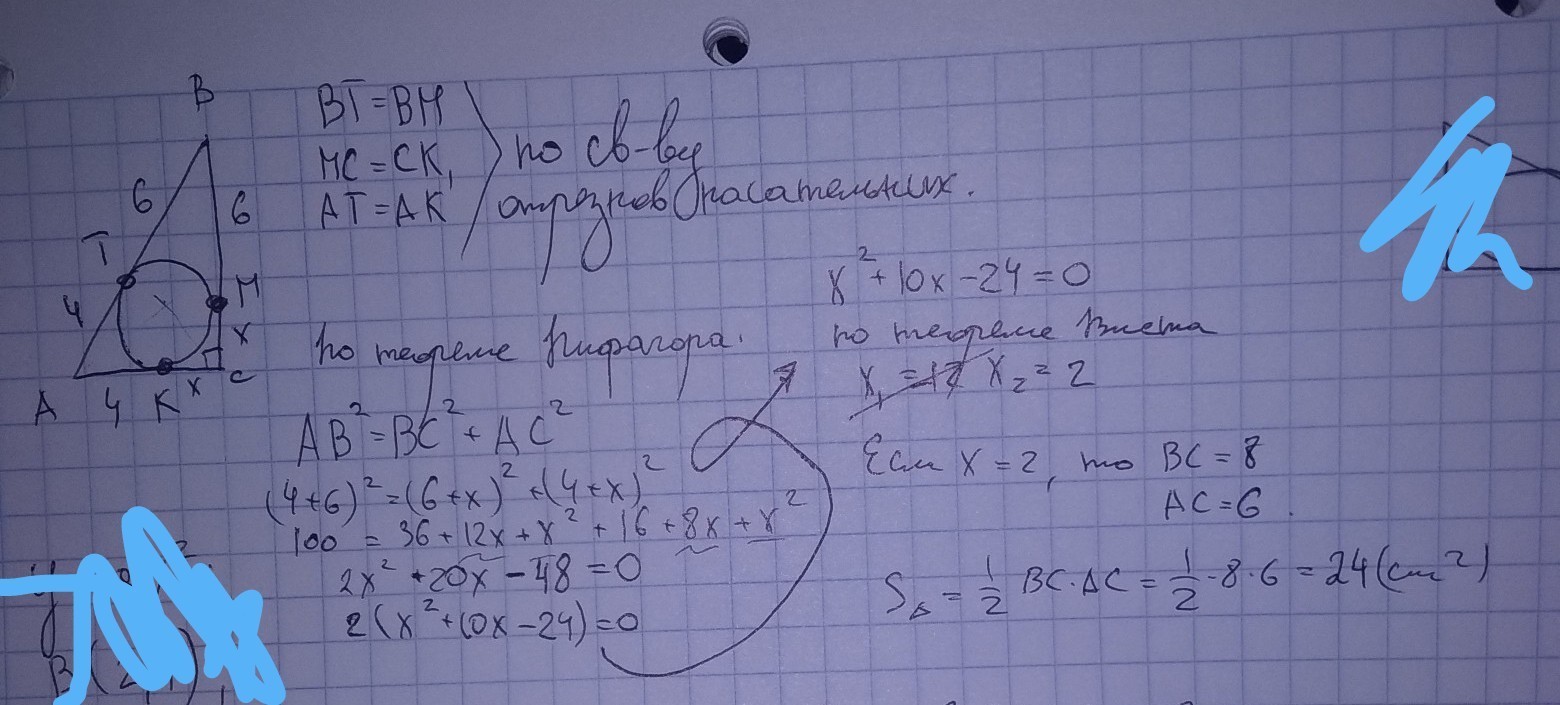 B
6
6
T
4
M
x
C
A 4 K x
BT = BM
MC = CK,
AT = AK
по св-ву
отрезков касательных.
По теореме Пифагора.
AB² = BC² + AC²
(4+6)² = (6+x)² + (4+x)²
100 = 36 + 12x + x² + 16 + 8x + x²
2x² + 20x - 48 = 0
2(x² + 10x - 24) = 0
x² + 10x - 24 = 0
по теореме Виета
x₁ = -12 x₂ = 2
Если x = 2, то BC = 8
AC = 6.
S△ = 1/2 BC · AC = 1/2 · 8 · 6 = 24 (cm²)